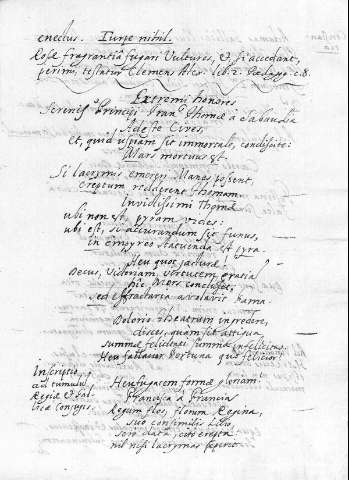 eneclus. Turpe nihil.
Rosæ fragrantiâ fugari Vultures, et si accedant,
perimi, testatur Clemens Alex: lib. 2. Pædagog. c. 8.
Extremi honores
Sereniss.o Principi Fran.o Thomæ a Sabaudia
Adeste Cives,
Et, quid uspiam sit immortale, condiscite:
Mars mortuus est.
Si lacrimis emergi Manes possent,
ereptum redderent Thomam
Invidissimi Thomæ
ubi non est, pyram vides:
ubi est, si accurandum sit funus,
in empyreo statuenda est pyra.
Heu quot jacturæ!
Decus, Victoriam, virtutem, gratia
hic Mors conclusit,
sed avolavit Fama.
Doloris theatrum ingredere,
disces, quam sit attiqua
summæ felicitati summa infelicitas.
Heu fallacior Fortuna quo felicior!
Inscriptio
ad tumulum
Regiæ
Conjugis.
Heu fugacem formæ gloriam.
Francisca a Francia
Regum flos, florum Regina,
suo consimilis Lilio,
sero data, cito erepta
nil nisi lacrymas